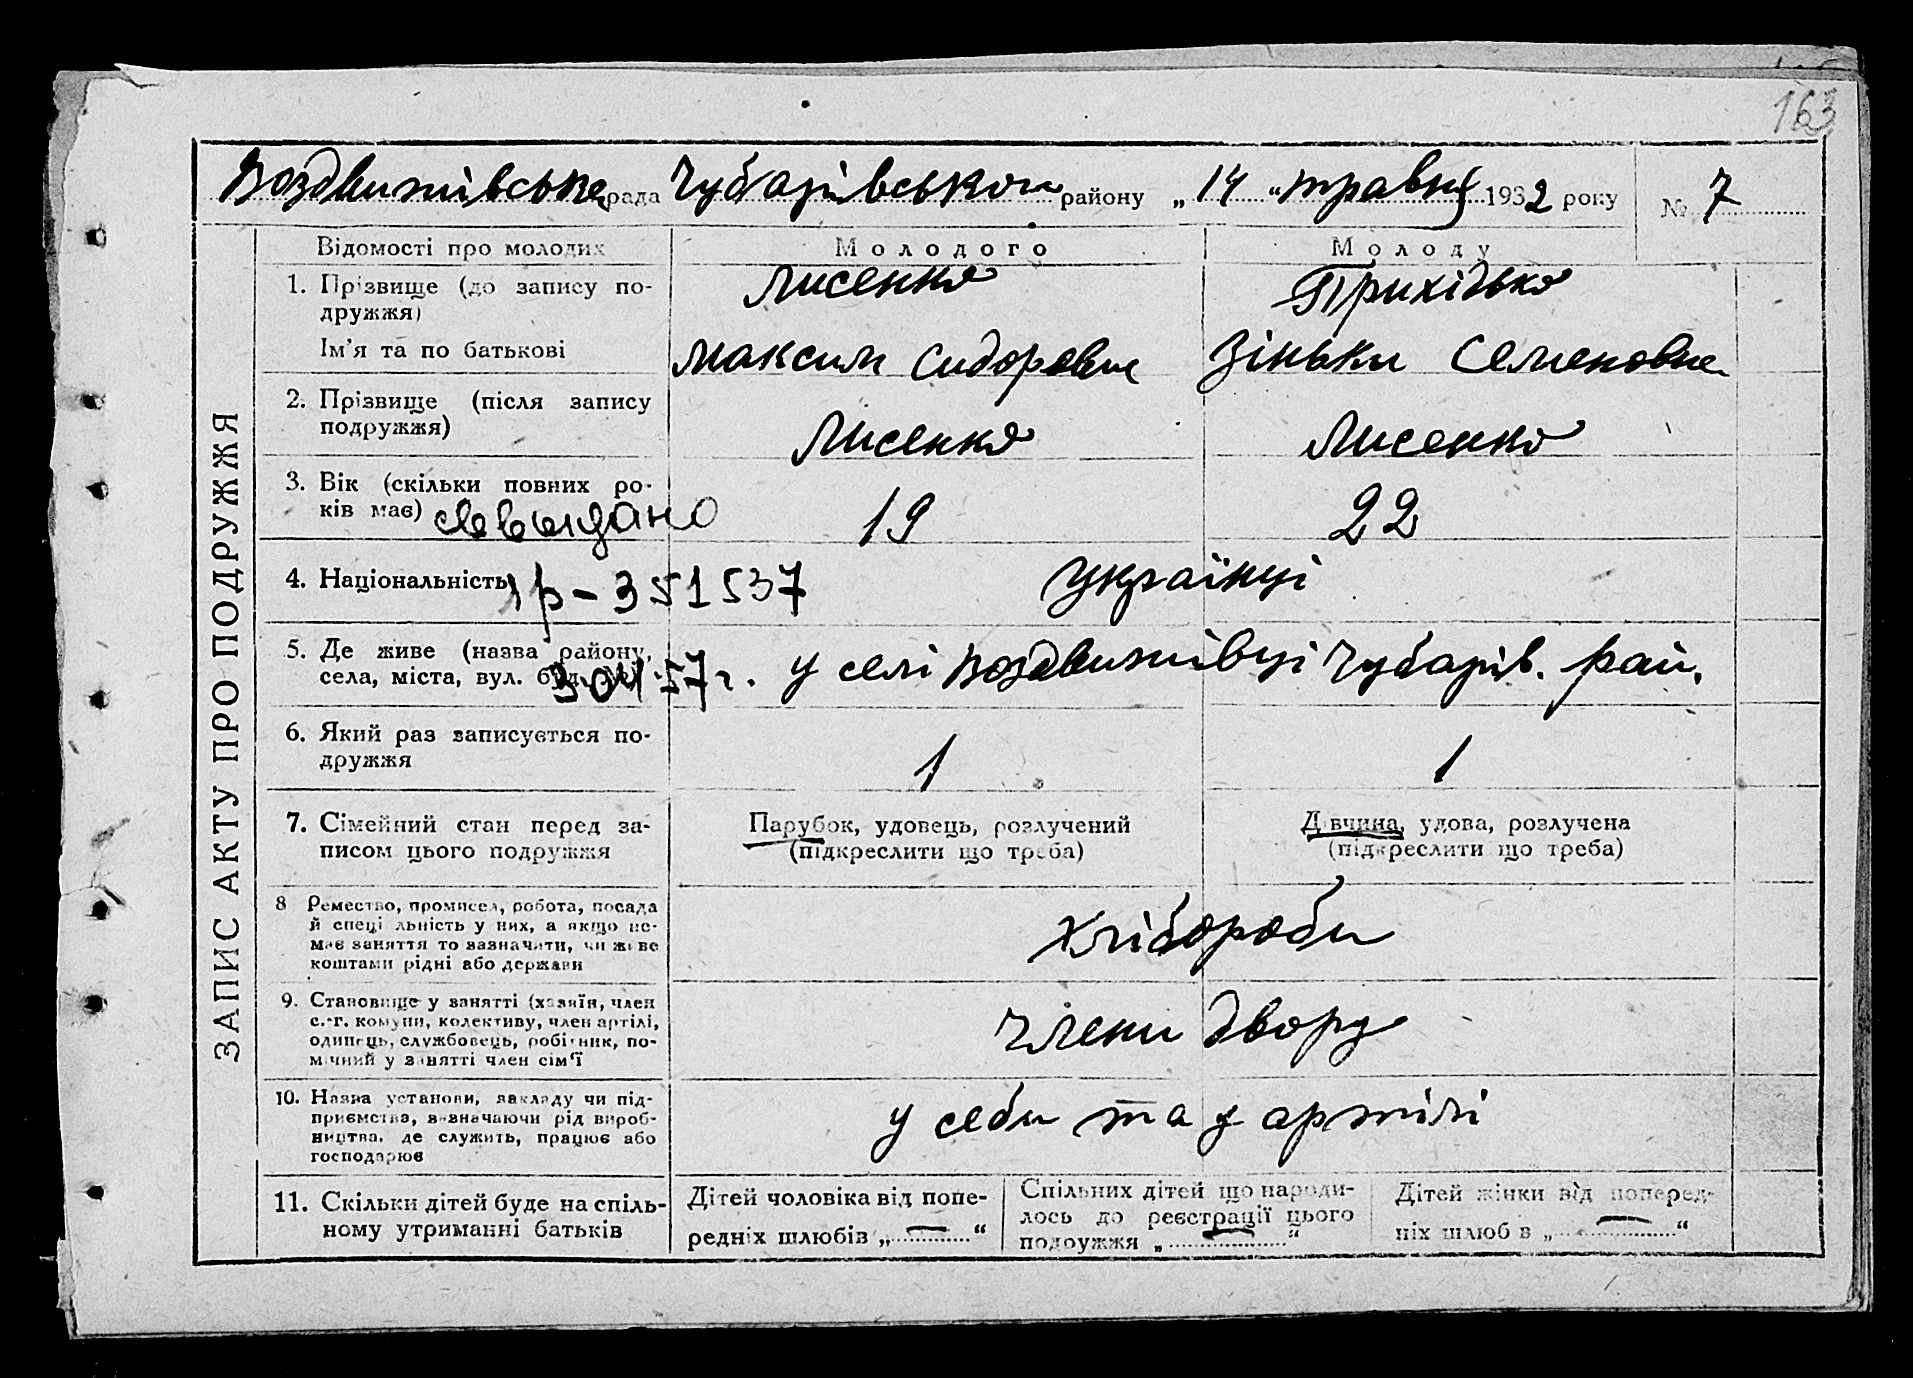 163
Воздвижівська рада Чубарівського району „14“ травня 1932 року № 7
ЗАПИС АКТУ ПРО ПОДРУЖЖЯ
Відомості про молодих
Молодого
Молоду
1. Прізвище (до запису по-
дружжя)
Лисенко
Приxідько
Ім’я та по батькові
Максим Сидорович
Зіньки Семеновна
2. Прізвище (після запису
подружжя)
Лисенко
Лисенко
3. Вік (скільки повних ро-
ків має)
19
22
4. Національність
р-351537
Українці
5. Де живе (назва району,
села, міста, вул. буд.
3.04.57 г.
у селі Воздвижівці Чубарів. рай.
6. Який раз записується по-
дружжя
1
1
7. Сімейний стан перед за-
писом цього подружжя
Парубок, удовець, розлучений
(підкреслити що треба)
Дівчина, удова, розлучена
(підкреслити що треба)
8 Ремество, промисел, робота, посада
й спеціяльність у них, а якщо не-
має заняття то зазначити, чи живе
коштами рідні або держави
Хлібороби
9. Становище у занятті (хазяїн, член
с.-г. комуни, колективу, член артілі,
одинець, службовець, робітник, по-
мічний у занятті член сім’ї
Члени двору
10. Назва установи, закладу чи під-
приємства, зазначаючи рід вироб-
ництва, де служить, працює або
господарює
у себи та у артілі
11. Скільки дітей буде на спіль-
ному утриманні батьків
Дітей чоловіка від попе-
редніх шлюбів „—“
Спільних дітей що народи-
лось до реєстрації цього
подружжя „—“
Дітей жінки від поперед-
ніх шлюбів „—“